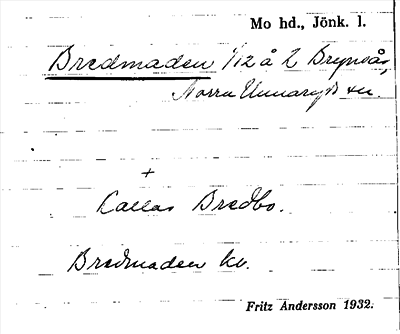 Mo hd., Jönk. l.
Bredmaden 1/12 å 2 Brynsås,
Norra Unnaryds sn.
+
Kallas Bredbo.
Bredmaden kv.
Fritz Andersson 1932.